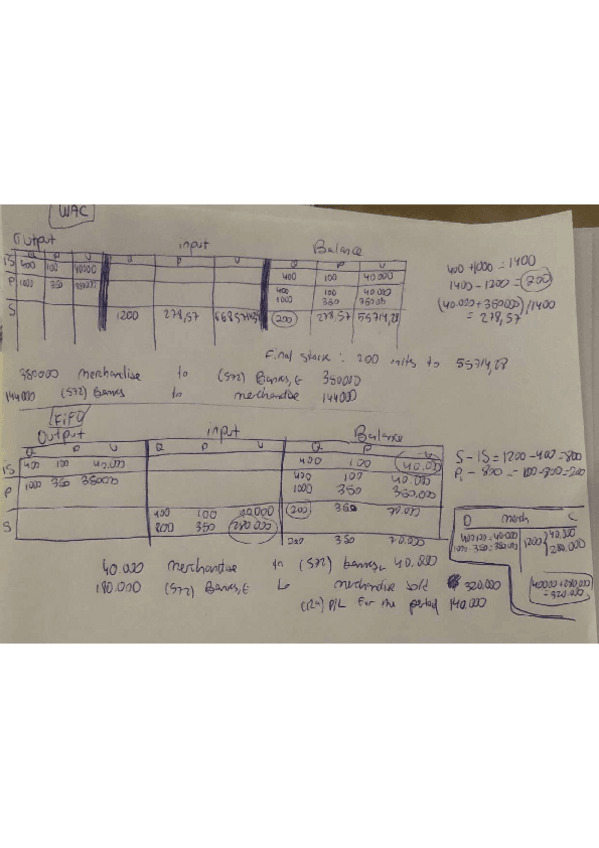 WAC
Output input Balance
Q P U Q P U Q P U
IS 400 100 40000 400 100 40.000
P 1000 350 400 100 40.000
1000 350
S 1200 278,57 200 278,57 55714,28
400 + 1000 = 1400
1400 - 1200 = 200
(40.000 + 350000)/1400
= 278,57
Final stock : 200 units to 55714,28
merchandise to (572) Banks, € 350000
144000 (572) Banks to merchandise 144000
FIFO
Output input Balance
Q P U Q P U Q P U
IS 400 100 40.000 400 100 40.000
P 1000 350 35000 400 100 40.000
1000 350 350,000
400 100 40000 200 350 70.000
S 800 350 280.000
200 350 70.000
S - IS = 1200 - 400 = 800
D merch C
1200 40.000
280.000
40000 + 280,000
40.000 merchandise to (572) banks 40.000
180.000 (572) Banks, € to merchandise sold 320.000
(129) P/L for the period 140.000